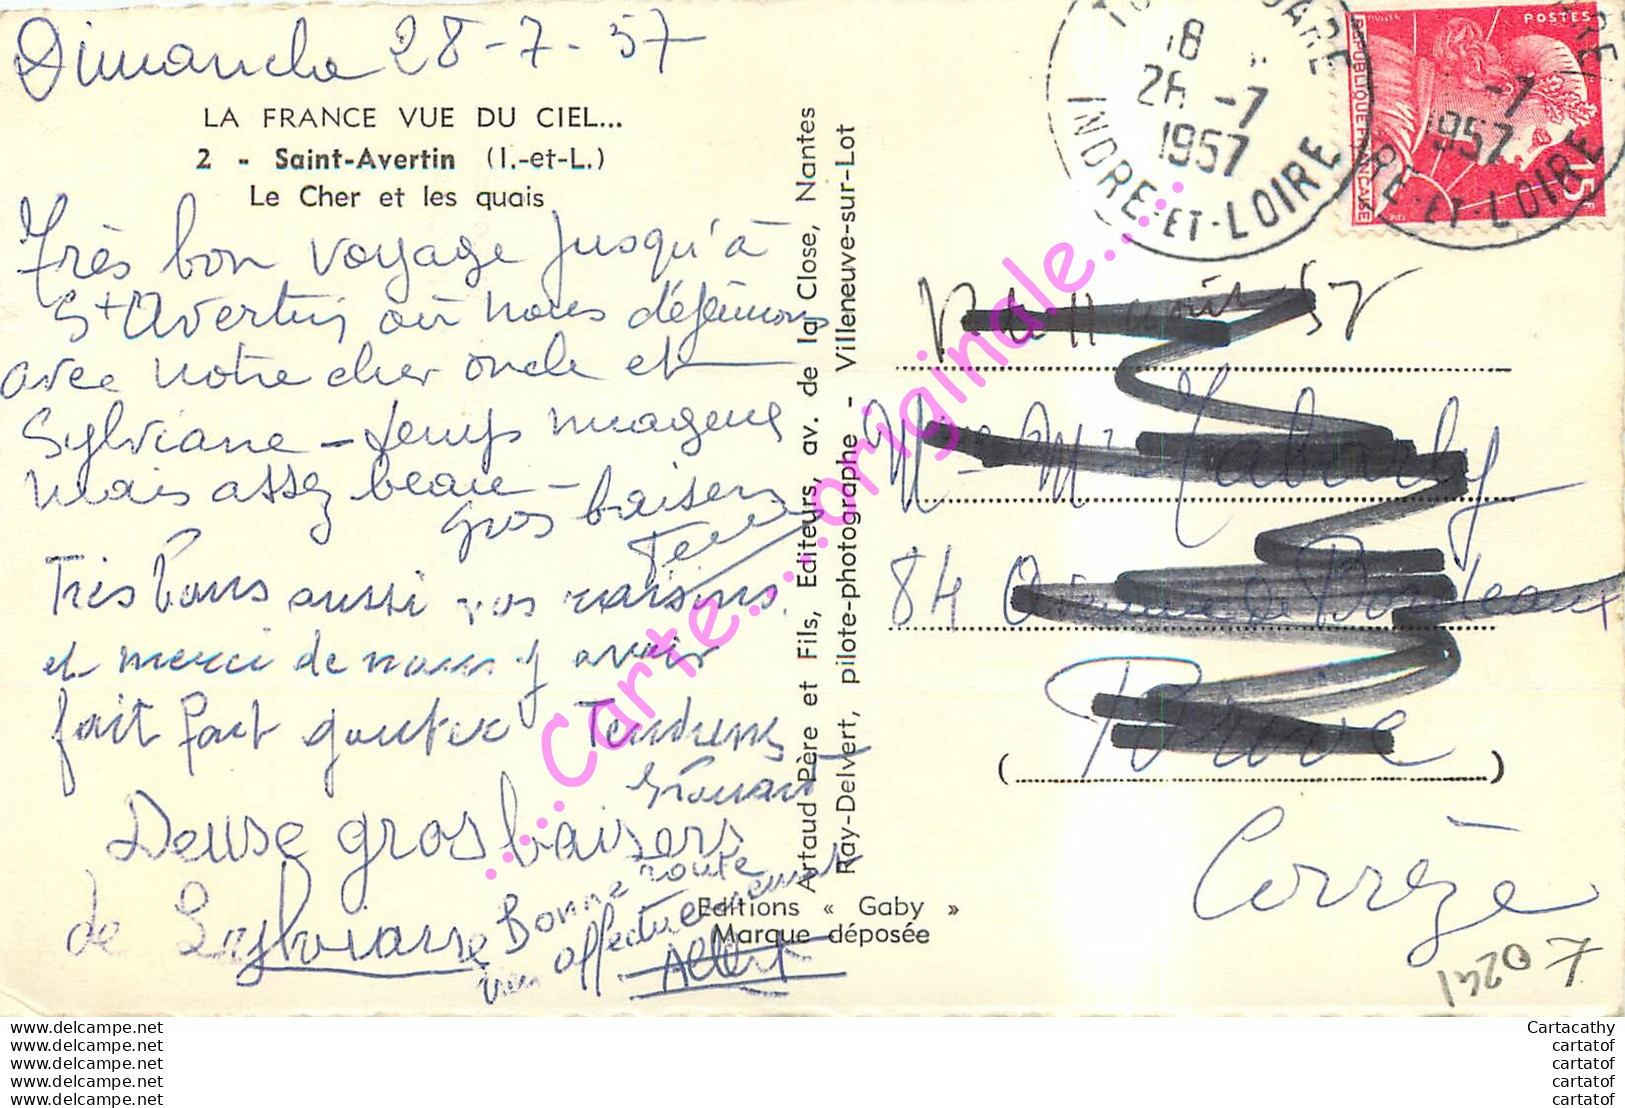 Dimanche 28-7-57
LA FRANCE VUE DU CIEL...
2 - Saint-Avertin (I.-et-L.)
Le Cher et les quais
Très bon voyage jusqu'à
St Avertin où nous déjeunons
avec notre cher oncle et
Sylviane - temps nuageux
mais assez beau -
gros baisers
Très bons aussi vos raisins
et merci de nous y avoir
fait fait gouter Tendresses
Deuse gros baisers
de Sylvianne
Bonne route
affectueusement
Albert
Artaud Père et Fils, Editeurs, av. de la Close, Nantes
Ray-Delvert, pilote-photographe - Villeneuve-sur-Lot
Editions « Gaby »
Marque déposée
18
26 -7
1957
INDRE-ET-LOIRE
-7
1957
RE-ET-LOIRE
POSTES
REPUBLIQUE FRANÇAISE
15F
Mr Mme Tabarly
84 Avenue de Bordeaux
Brive
(
)
Corrèze
0241
...Carte...originale...
www.delcampe.net
www.delcampe.net
www.delcampe.net
www.delcampe.net
www.delcampe.net
Cartacathy
cartatof
cartatof
cartatof
cartatof